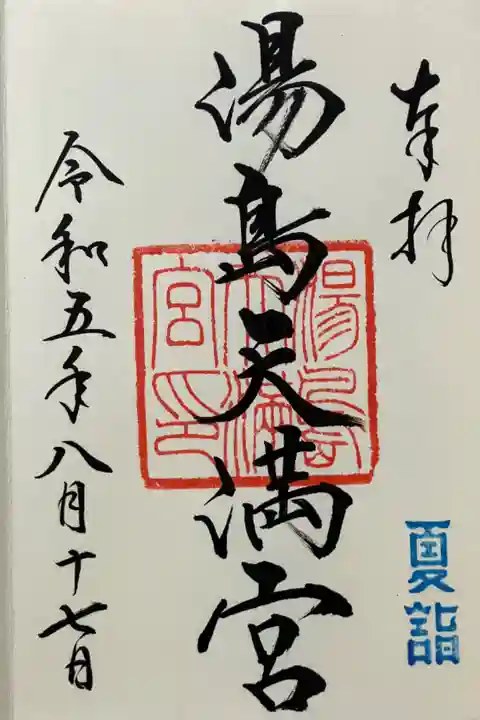 奉拝
夏詣
湯島天満宮
湯島天満宮印
令和五年八月十七日